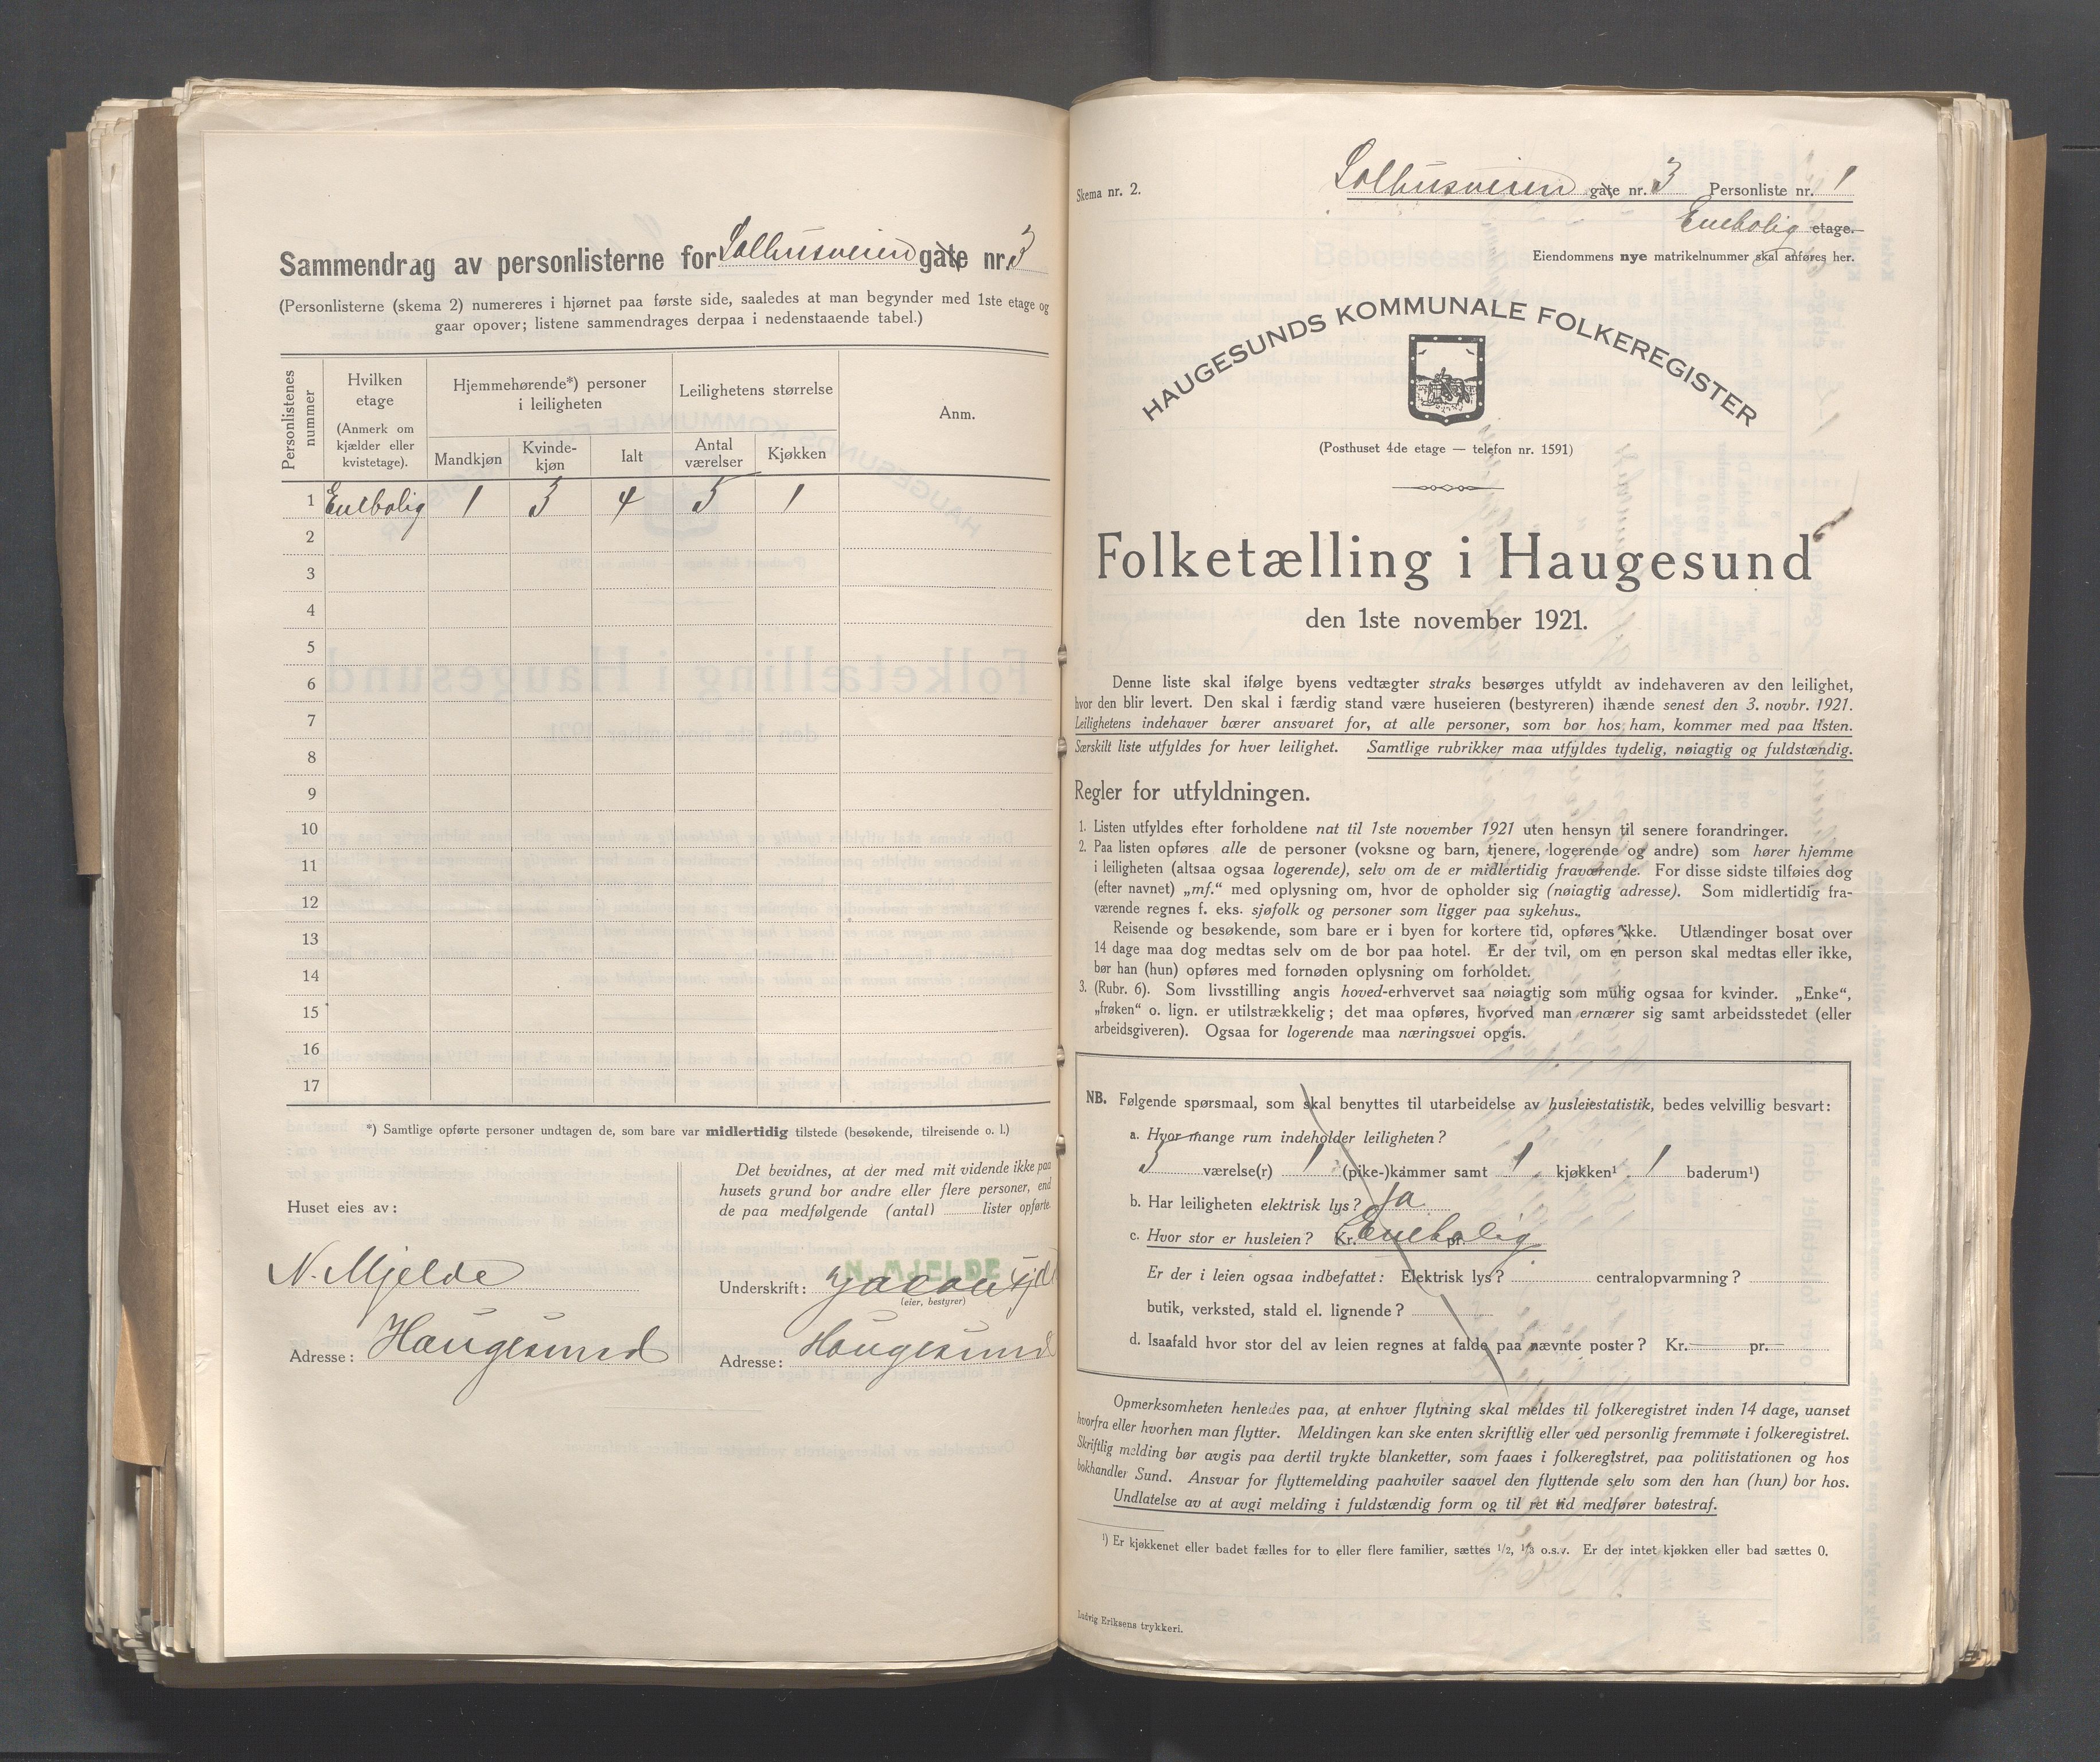 Sammendrag av personlisterne for Solhusveien gate nr. 3
(Personlisterne (skema 2) numereres i hjørnet paa første side, saaledes at man begynder med 1ste etage og
gaar opover; listene sammendrages derpaa i nedenstaaende tabel.)
Personlistenes nummer
Hvilken etage
(Anmerk om kjælder eller kvistetage).
Hjemmehørende*) personer i leiligheten
Leilighetens størrelse
Anm.
Mandkjøn
Kvinde-kjøn
Ialt
Antal værelser
Kjøkken
1 Enebolig 1 3 4 5 1
2
3
4
5
6
7
8
9
10
11
12
13
14
15
16
17
*) Samtlige opførte personer undtagen de, som bare var midlertidig tilstede (besøkende, tilreisende o. l.)
Huset eies av:
N. Mjelde
Adresse: Haugesund
Det bevidnes, at der med mit vidende ikke paa
husets grund bor andre eller flere personer, end
de paa medfølgende (antal) lister opførte.
N. MJELDE
Underskrift:
(eier, bestyrer)
Adresse: Haugesund
Skema nr. 2.
Solhusveien gate nr. 3 Personliste nr. 1
Enebolig etage.
Eiendommens nye matrikelnummer skal anføres her.
HAUGESUNDS KOMMUNALE FOLKEREGISTER
(Posthuset 4de etage — telefon nr. 1591)
Folketælling i Haugesund
den 1ste november 1921.
Denne liste skal ifølge byens vedtægter straks besørges utfyldt av indehaveren av den leilighet,
hvor den blir levert. Den skal i færdig stand være huseieren (bestyreren) ihænde senest den 3. novbr. 1921.
Leilighetens indehaver bærer ansvaret for, at alle personer, som bor hos ham, kommer med paa listen.
Særskilt liste utfyldes for hver leilighet. Samtlige rubrikker maa utfyldes tydelig, nøiagtig og fuldstændig.
Regler for utfyldningen.
1. Listen utfyldes efter forholdene nat til 1ste november 1921 uten hensyn til senere forandringer.
2. Paa listen opføres alle de personer (voksne og barn, tjenere, logerende og andre) som hører hjemme
i leiligheten (altsaa ogsaa logerende), selv om de er midlertidig fraværende. For disse sidste tilføies dog
(efter navnet) „mf.“ med oplysning om, hvor de opholder sig (nøiagtig adresse). Som midlertidig fra-
værende regnes f. eks. sjøfolk og personer som ligger paa sykehus.
Reisende og besøkende, som bare er i byen for kortere tid, opføres ikke. Utlændinger bosat over
14 dage maa dog medtas selv om de bor paa hotel. Er der tvil, om en person skal medtas eller ikke,
bør han (hun) opføres med fornøden oplysning om forholdet.
3. (Rubr. 6). Som livsstilling angis hoved-erhvervet saa nøiagtig som mulig ogsaa for kvinder. „Enke“,
„frøken“ o. lign. er utilstrækkelig; det maa opføres, hvorved man ernærer sig samt arbeidsstedet (eller
arbeidsgiveren). Ogsaa for logerende maa næringsvei opgis.
NB. Følgende spørsmaal, som skal benyttes til utarbeidelse av husleiestatistik, bedes velvillig besvart:
a. Hvor mange rum indeholder leiligheten?
3 værelse(r) 1 (pike-)kammer samt 1 kjøkken¹ 1 baderum¹)
b. Har leiligheten elektrisk lys? Ja
c. Hvor stor er husleien? Kr. Enebolig pr.
Er der i leien ogsaa indbefattet: Elektrisk lys? centralopvarmning?
butik, verksted, stald el. lignende?
d. Isaafald hvor stor del av leien regnes at falde paa nævnte poster? Kr. pr.
Opmerksomheten henledes paa, at enhver flytning skal meldes til folkeregistret inden 14 dage, uanset
hvorfra eller hvorhen man flytter. Meldingen kan ske enten skriftlig eller ved personlig fremmøte i folkeregistret.
Skriftlig melding bør avgis paa dertil trykte blanketter, som faaes i folkeregistret, paa politistationen og hos
bokhandler Sund. Ansvar for flyttemelding paahviler saavel den flyttende selv som den han (hun) bor hos.
Undlatelse av at avgi melding i fuldstændig form og til ret tid medfører bøtestraf.
¹) Er kjøkkenet eller badet fælles for to eller flere familier, sættes 1/2, 1/3 o.s.v. Er der intet kjøkken eller bad sættes 0.
Ludvig Eriksens trykkeri.